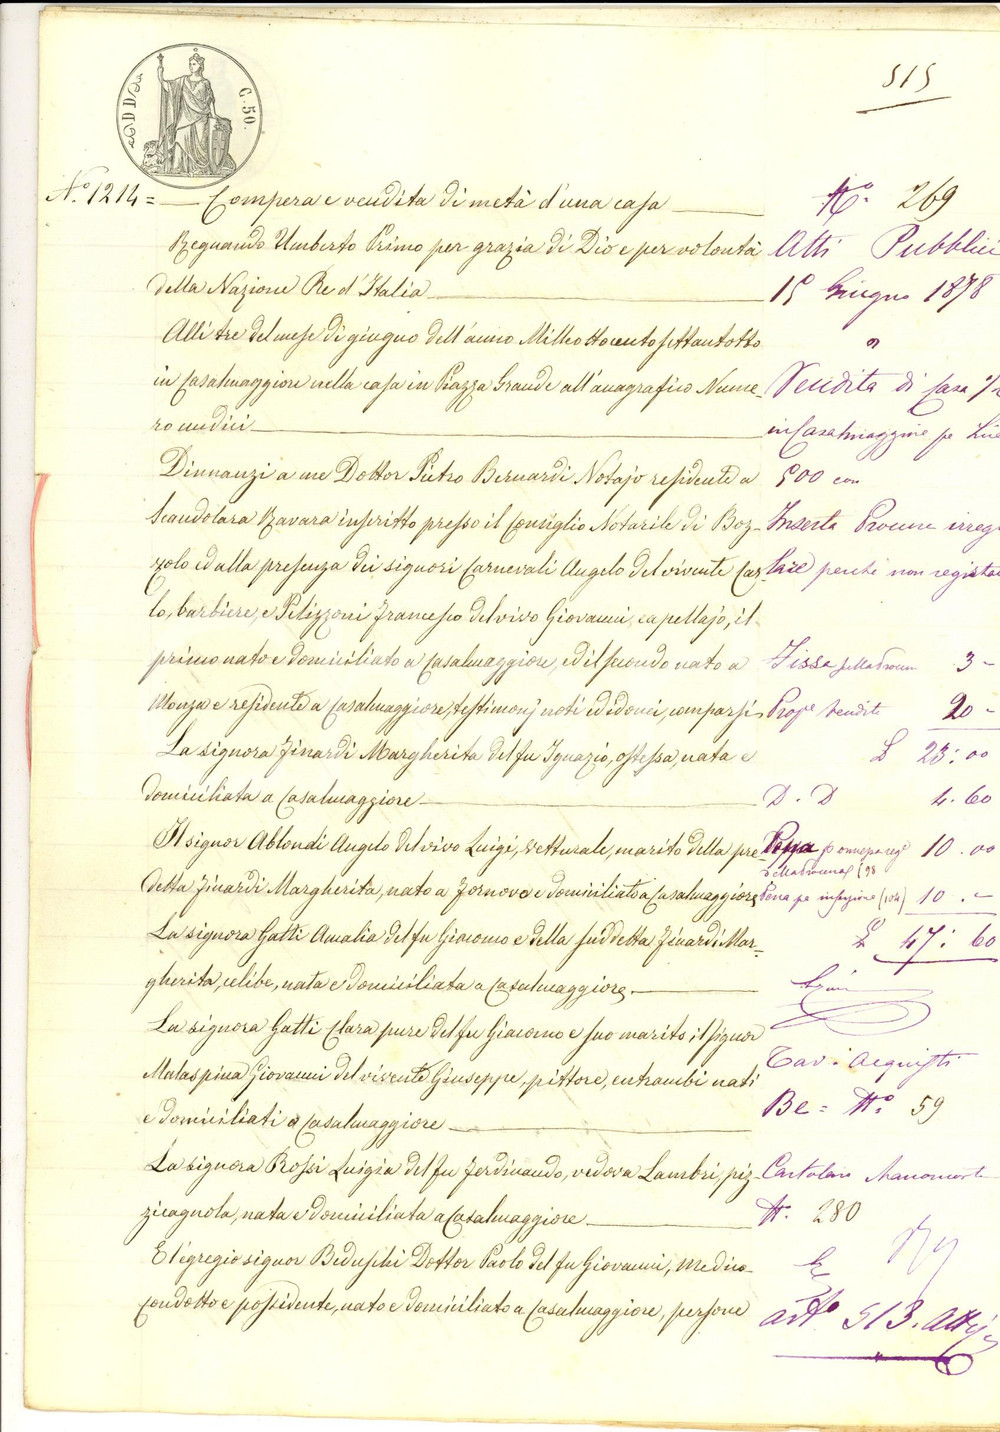 515
D D
C. 50.
N.° 1214 = Compera e vendita di metà d'una casa
Regnando Umberto Primo per grazia di Dio e per volontà
della Nazione Re d'Italia
Alli tre del mese di giugno dell'anno Milleottocentosettantotto
in Casalmaggiore nella casa in Piazza Grande all'anagrafico Nume-
ro undici
Dinnanzi a me Dottor Pietro Bernardi Notajo residente a
Scandolara Ravara inscritto presso il Consiglio Notarile di Boz-
zolo ed alla presenza dei signori Carnevali Angelo del vivente Car-
lo, barbiere, e Pelizzoni Francesco del vivo Giovanni, capellajo, il
primo nato e domiciliato a Casalmaggiore, ed il secondo nato a
Monza e residente a Casalmaggiore, testimonj noti ed idonei, comparsi
La signora Finardi Margherita del fu Ignazio, ostessa, nata e
domiciliata a Casalmaggiore
Il signor Ablondi Angelo del vivo Luigi, vetturale, marito della pre-
detta Finardi Margherita, nato a Fornovo e domiciliato a Casalmaggiore
La signora Gatti Amalia del fu Giacomo e della suddetta Finardi Mar-
gherita, celibe, nata e domiciliata a Casalmaggiore.
La signora Gatti Clara pure del fu Giacomo e suo marito il signor
Malaspina Giovanni del vivente Giuseppe, pittore, entrambi nati
e domiciliati a Casalmaggiore
La signora Rossi Luigia del fu Ferdinando, vedova Lambri, piz-
zicagnola, nata e domiciliata a Casalmaggiore
E l'egregio signor Beduschi Dottor Paolo del fu Giovanni, Medico
condotto e possidente, nato e domiciliato a Casalmaggiore, persone
N.° 269
Atti Pubblici
15 Giugno 1878
Vendita di Casa 1/2
in Casalmaggiore pe Lire
500 con
Inserta Procura irrego
lare perché non registra
Fissa 3 -
Prop.e Vendite 20 -
£ 23:00
D. D 4.60
10.00
Pena pe inserzione (104) 10.-
£ 47:60
Tav: Acquisti
Be = N.° 59
N. 280
Art.° 513. Atti